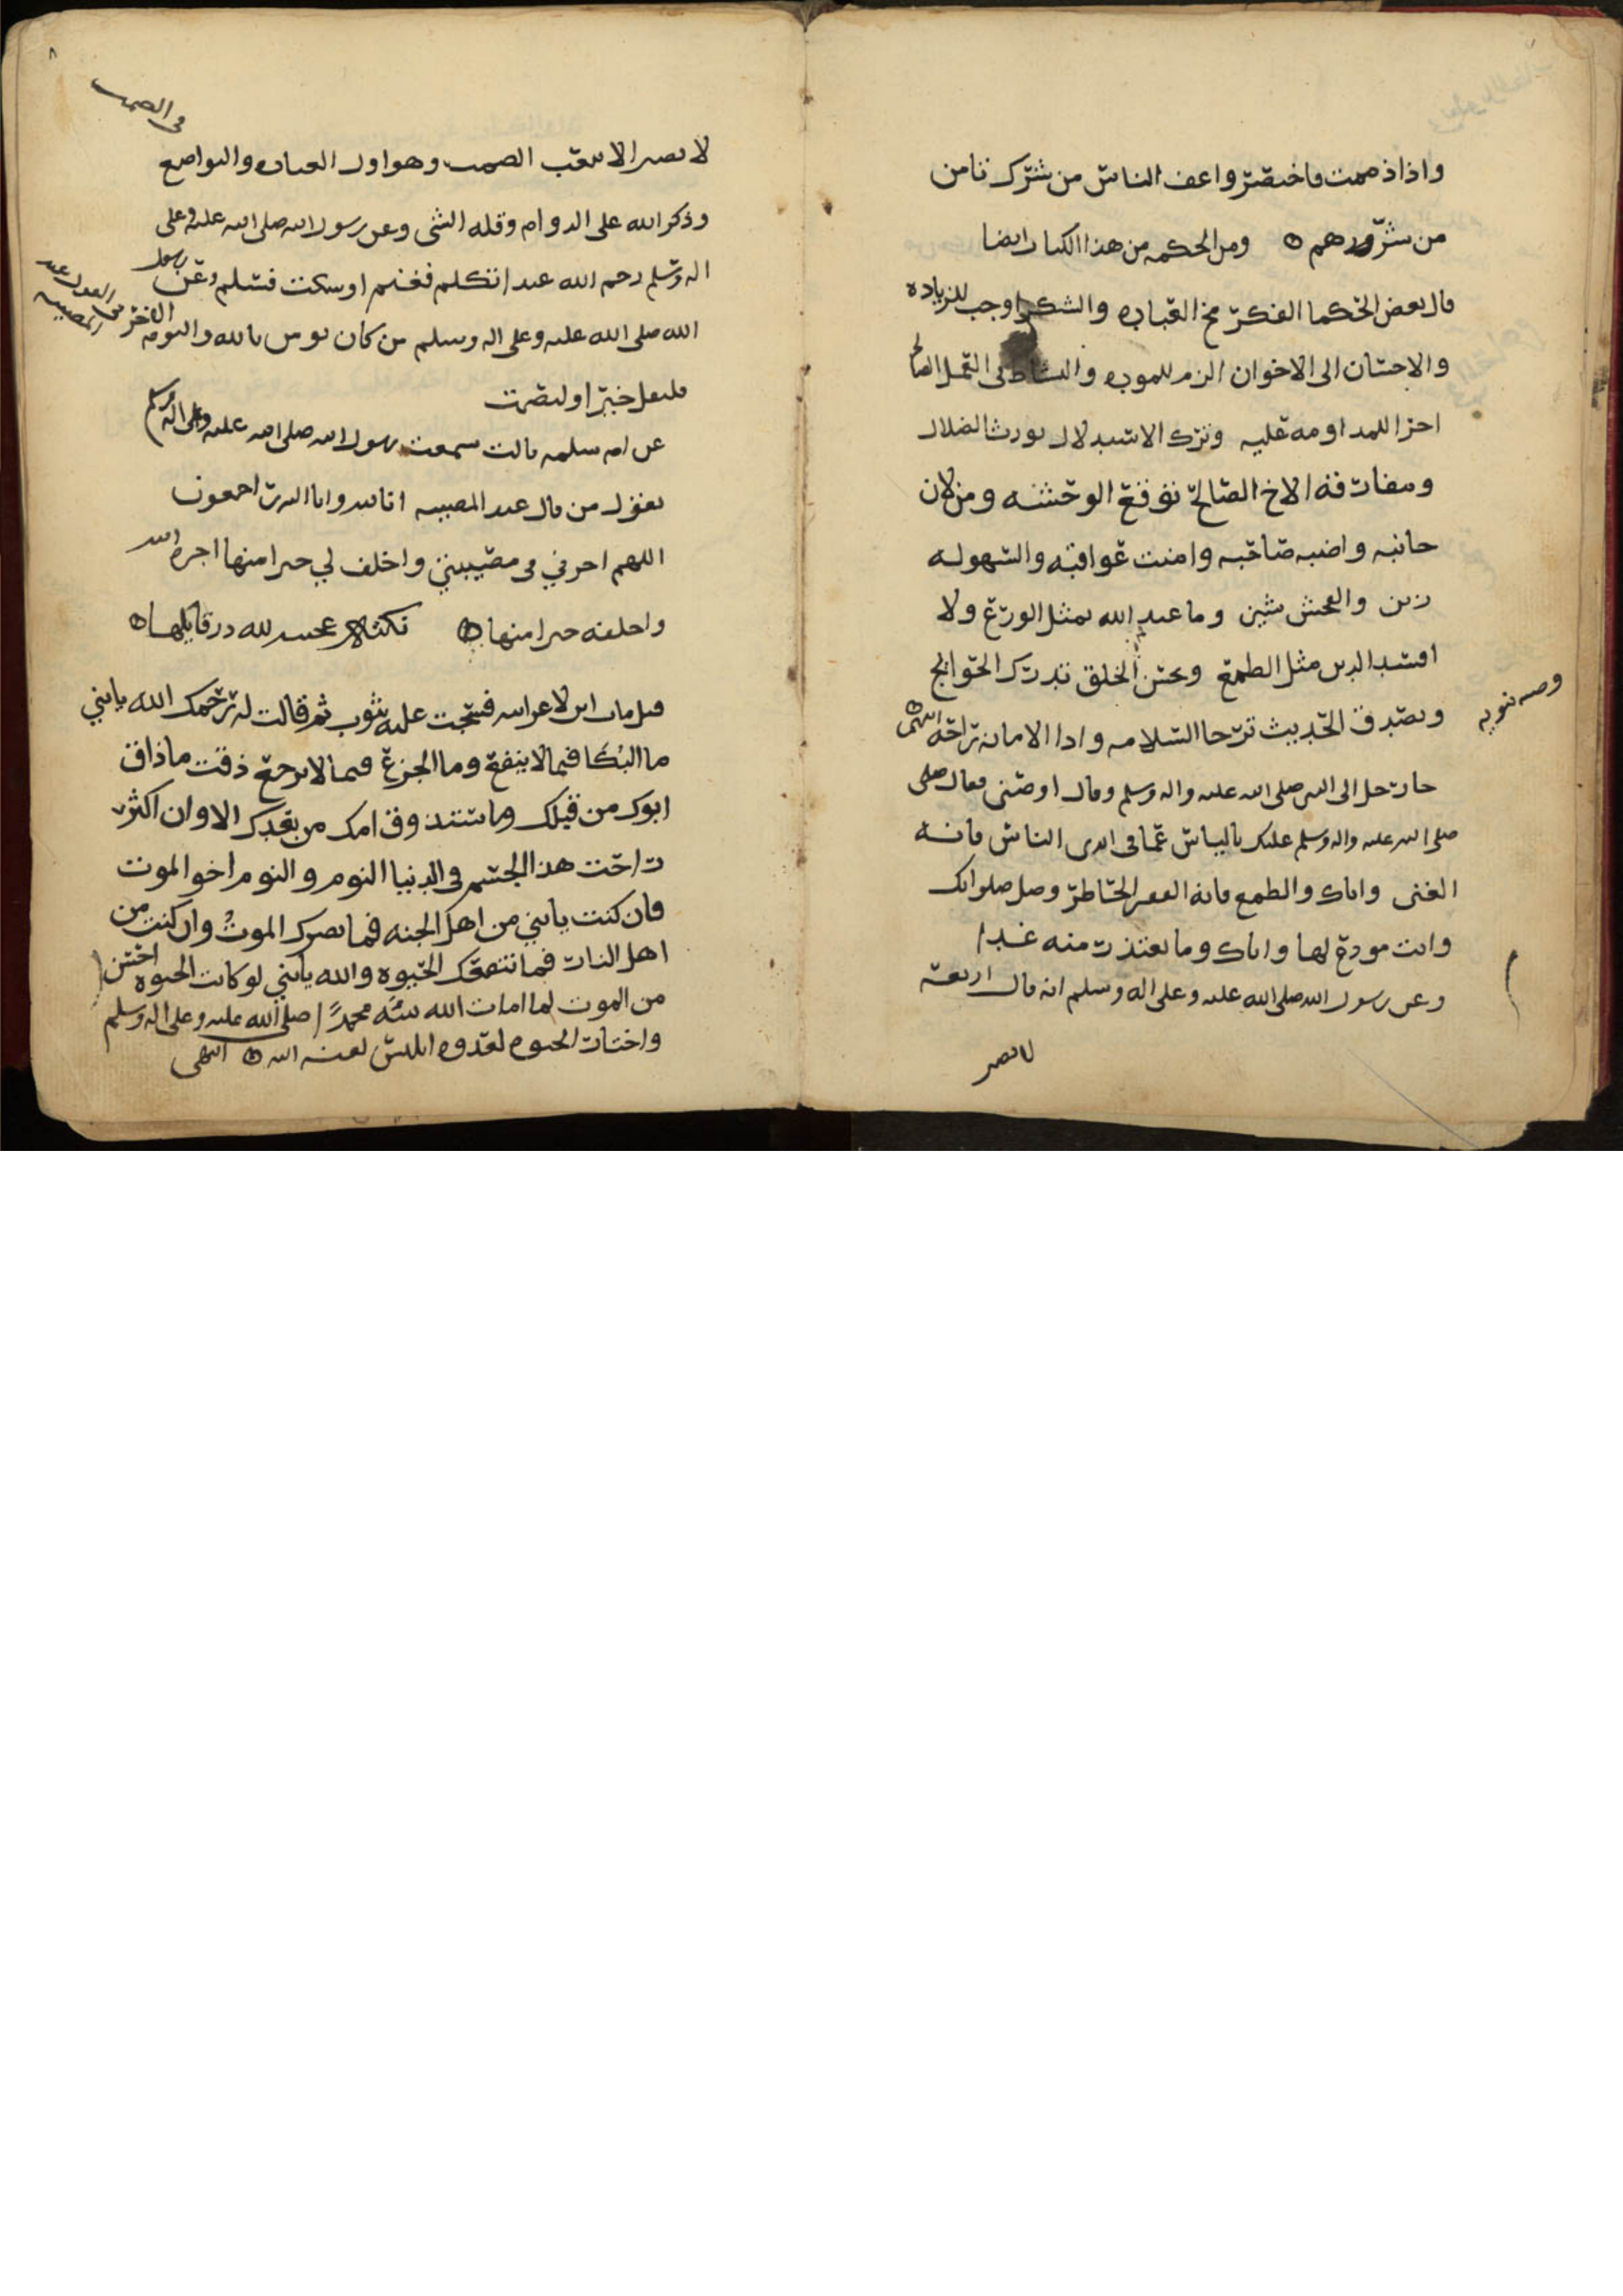 واذا ذممت فاختصر واعف الناس من شرك تامن
من شرورهم ومن الحكمه من هذا الكتاب ايضا
قال بعض الحكما الفكر مخ العباده والشكر اوجب للزياده
والاحسان الى الاخوان الزم للموده والنشاط فى العمل الصالح
احرا للمداومه عليه وترك الاستدلال يورث الضلال
وبمفارقة الاخ الصالح توقع الوحشه ومن لان
جانبه واضبه صاحبه وامنت عواقبه والسهوله
زين والفحش شين وما عبد الله بمثل الورع ولا
افسد الدين مثل الطمع وبحسن الخلق تدرك الحوايج
وبصدق الحديث ترجا السلامه وادا الامانه راحه انتهى
وصيه نبويه
جا رجل الى النبى صلى الله عليه واله وسلم وقال اوصنى فقال صلى
صلى الله عليه واله وسلم عليك بالياس عما فى ايدى الناس فانه
الغنى واياك والطمع فانه الفقر الحاظر وصل صلواتك
وانت مودع لها واياك وما يعتذر منه غدا
وعن رسول الله صلى الله عليه وعلى اله وسلم انه قال اربعة
لا تصبر
٨
فى الصمت
لا تصبر الا بتعب الصمت وهو اول العباده والتواضع
وذكر الله على الدوام وقله الشى وعن رسول الله صلى الله عليه وعلى
اله وسلم رحم الله عبدا تكلم فغنم او سكت فسلم وعن رسول
الله صلى الله عليه وعلى اله وسلم من كان يومن بالله واليوم الاخر
فى القول عند المصيبه
فليقل خيرا او ليصمت
عن ام سلمه قالت سمعت رسول الله صلى الله عليه وعلى اله وسلم
يقول من قال عند المصيبه انا لله وانا اليه راجعون
اللهم اجرني فى مصيبتي واخلف لي خيرا منها اجره الله
واخلفه خيرا منها نكته عجيبه لله در قايلها
قيل مات ابن لاعرابيه فسجت عليه بثوب ثم قالت له رحمك الله يابني
ما البكا فيما لا ينفع وما الجزع فيما لا يرجع ذقت ما ذاق
ابوك من قبلك وما ستذوق امك من بعدك الا وان اكثر
راحت هذا الجسم فى الدنيا النوم والنوم اخو الموت
فان كنت يابني من اهل الجنه فما يضرك الموت وان كنت من
اهل النار فما تنفعك الحيوه والله يابني لو كانت الحيوه احسن
من الموت لما امات الله نبيه محمدا صلى الله عليه وعلى اله وسلم
واختار الحيوه لعدوه ابليس لعنه الله انتهى